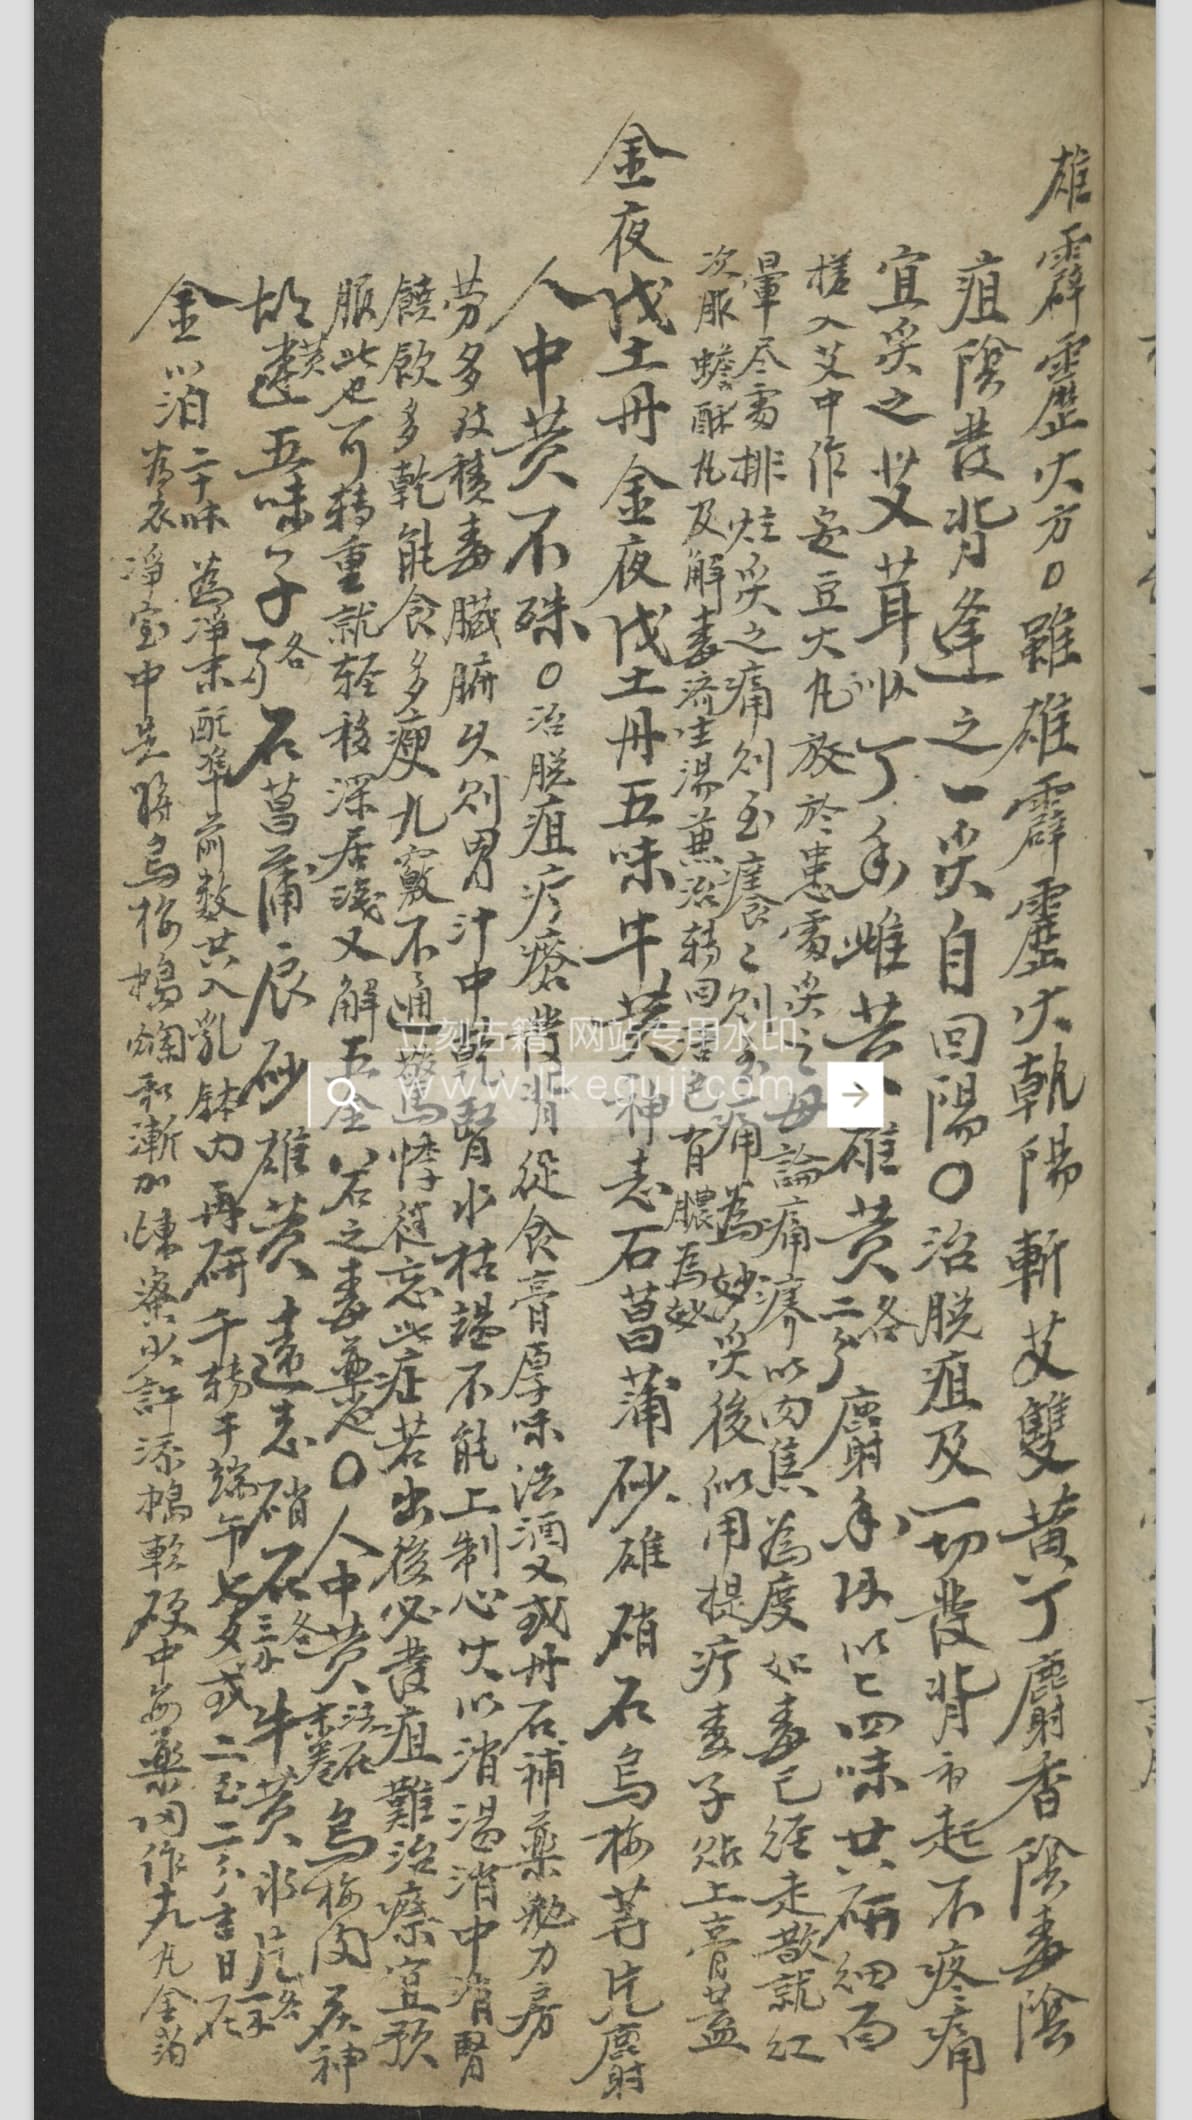 雄霹靂火方○雖雄霹靂火執陽斬艾雙黃丁麝香陰毒陰
疽陰發背逢之一灸自回陽○治脫疽及一切發背初起不疼痛
宜灸之 艾茸 丁香 雌黃 雄黃各二分 麝香 以四味共研細
搓入艾中作安豆大丸放於患處灸之毋論痛癢以肉焦為度如毒已經走散就紅
暈尽處排炷灸之痛則至癢癢則至痛為妙灸後仍用提疔麥子貼上膏蓋
次服蟾酥丸及解毒濟生湯兼治轉回活色有膿為妙
金夜戊土丹金夜戊土丹五味牛黃神志石菖蒲砂雄硝石烏梅片麝
人中黃不殊○治脫疽疔瘡發背從食膏厚味法酒又或丹石補藥勉力房
勞多致積毒臟腑久則胃汁中乾腎水枯竭不能上制心火以消湯消中消腎
饒飲多乾能食多瘦九竅不通驚悸健忘此症若出後必發疽難治療宜預
服此也可轉重就轻移深居淺又解五金八石之毒藥也○人中黃 烏梅肉 茯神
胡黃連 五味子各 石菖蒲 辰砂 雄黃 遠志 硝石各三分 牛黃 冰片各一分
金泊二十味為淨末配準前数共入乳鉢内再研千轉于端午七夕或二至二分吉日在
為衣淨室中先將烏梅搗爛和漸加煉蜜少許添搗軟硬中和藥作丸金泊
立刻古籍 网站专用水印
www.likeguji.com